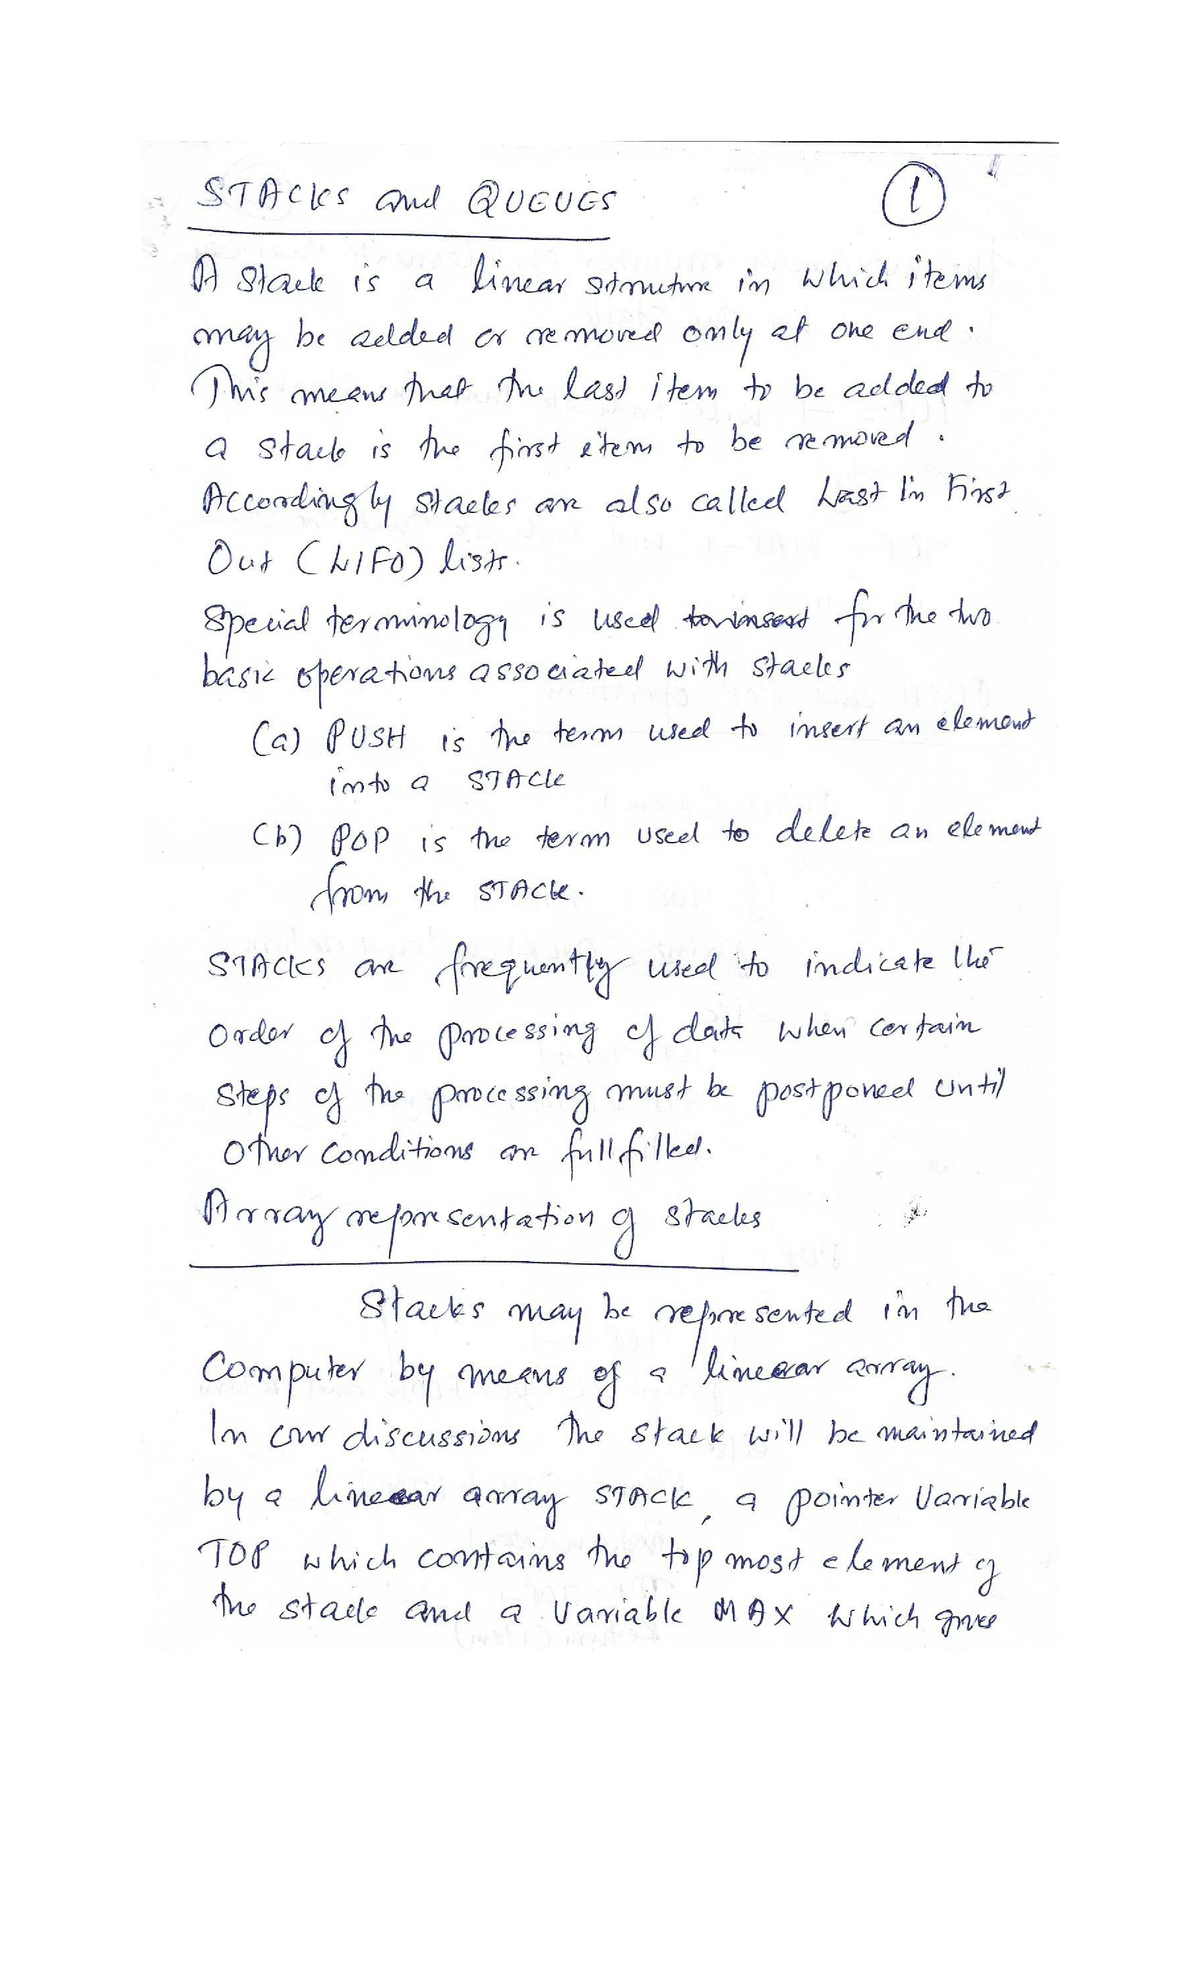 STACKS and QUEUES
1
A Stack is a linear structure in which items
may be added or removed only at one end.
This means that the last item to be added to
a stack is the first item to be removed.
Accordingly stacks are also called Last In First
Out (LIFO) lists.
Special terminology is used to insert for the two
basic operations associated with stacks
(a) PUSH is the term used to insert an element
into a STACK
(b) POP is the term used to delete an element
from the STACK.
STACKS are frequently used to indicate the
order of the processing of data when certain
steps of the processing must be postponed until
other conditions are fullfilled.
Array representation of stacks
Stacks may be represented in the
Computer by means of a linear array.
In our discussions the stack will be maintained
by a linear array STACK, a pointer variable
TOP which contains the top most element of
the stack and a variable MAX which gives